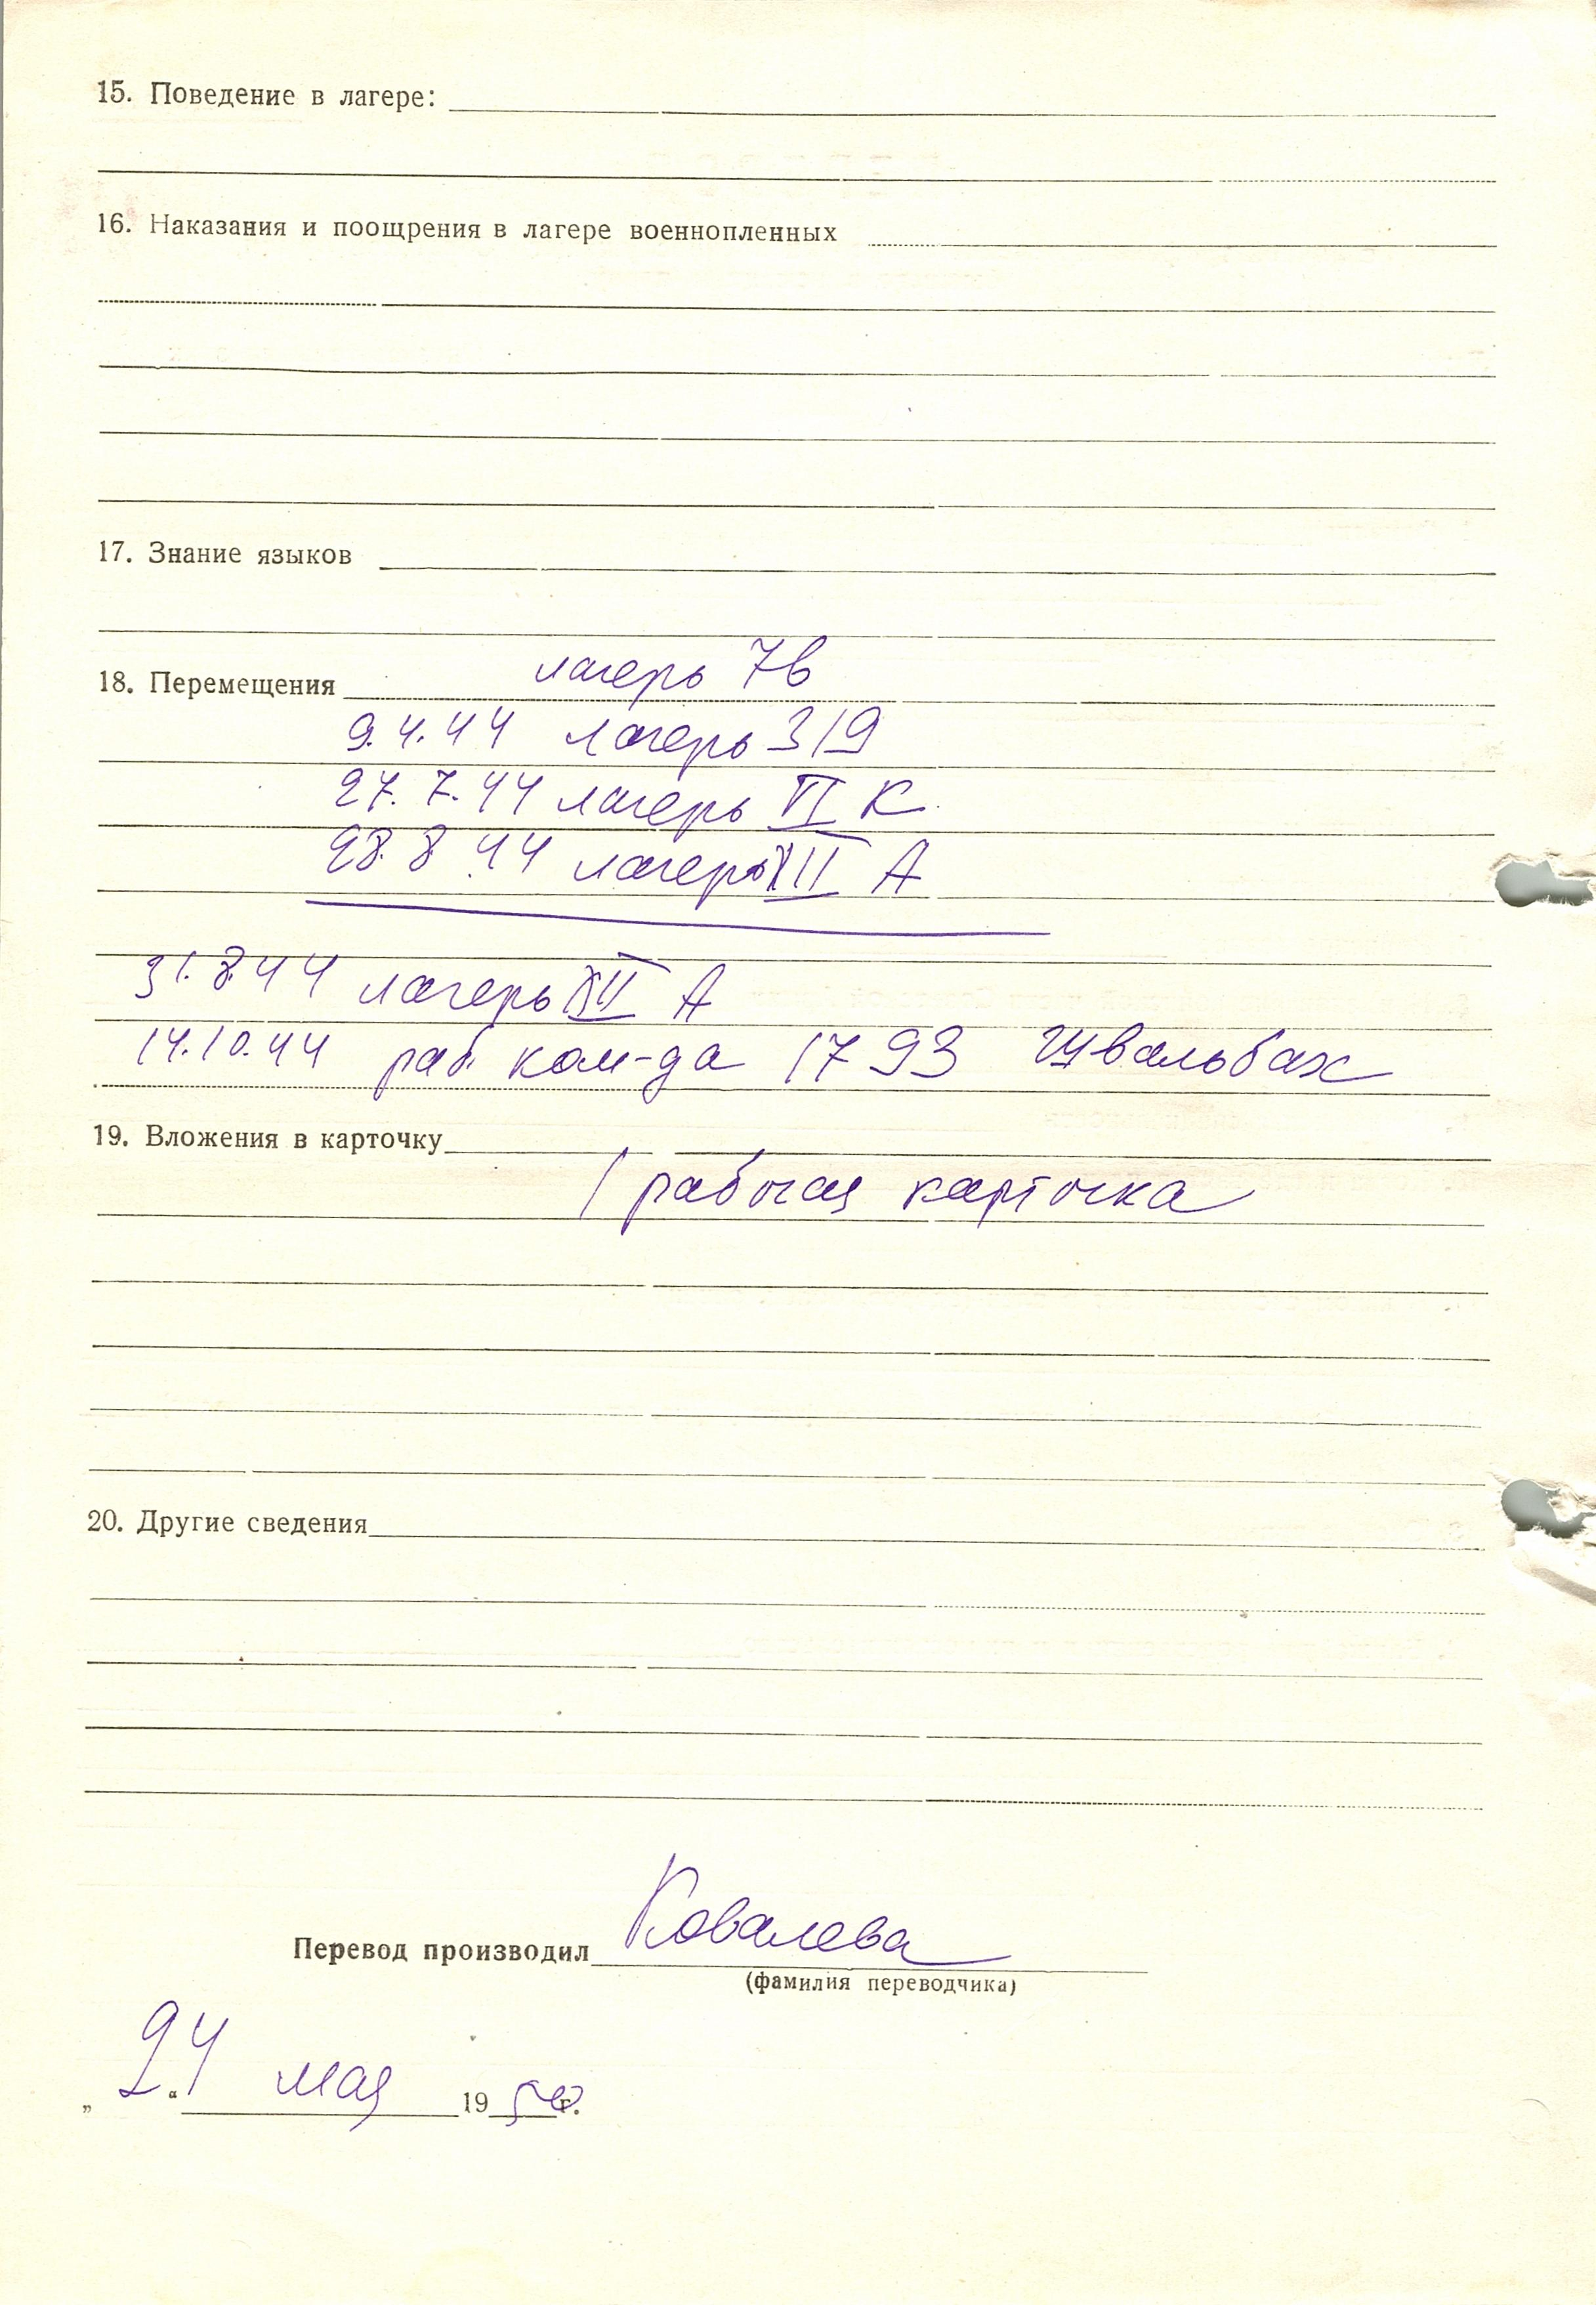 15. Поведение в лагере:
16. Наказания и поощрения в лагере военнопленных
17. Знание языков
18. Перемещения лагерь 7в
9.4.44 лагерь 319
27.7.44 лагерь VI К
28.8.44 лагерь XII А
31.8.44 лагерь XII А
14.10.44 раб. ком-да 1793 Швальбах
19. Вложения в карточку
1 рабочая карточка
20. Другие сведения
Перевод производил Ковалева
(фамилия переводчика)
„ 24 “ мая 1950 г.